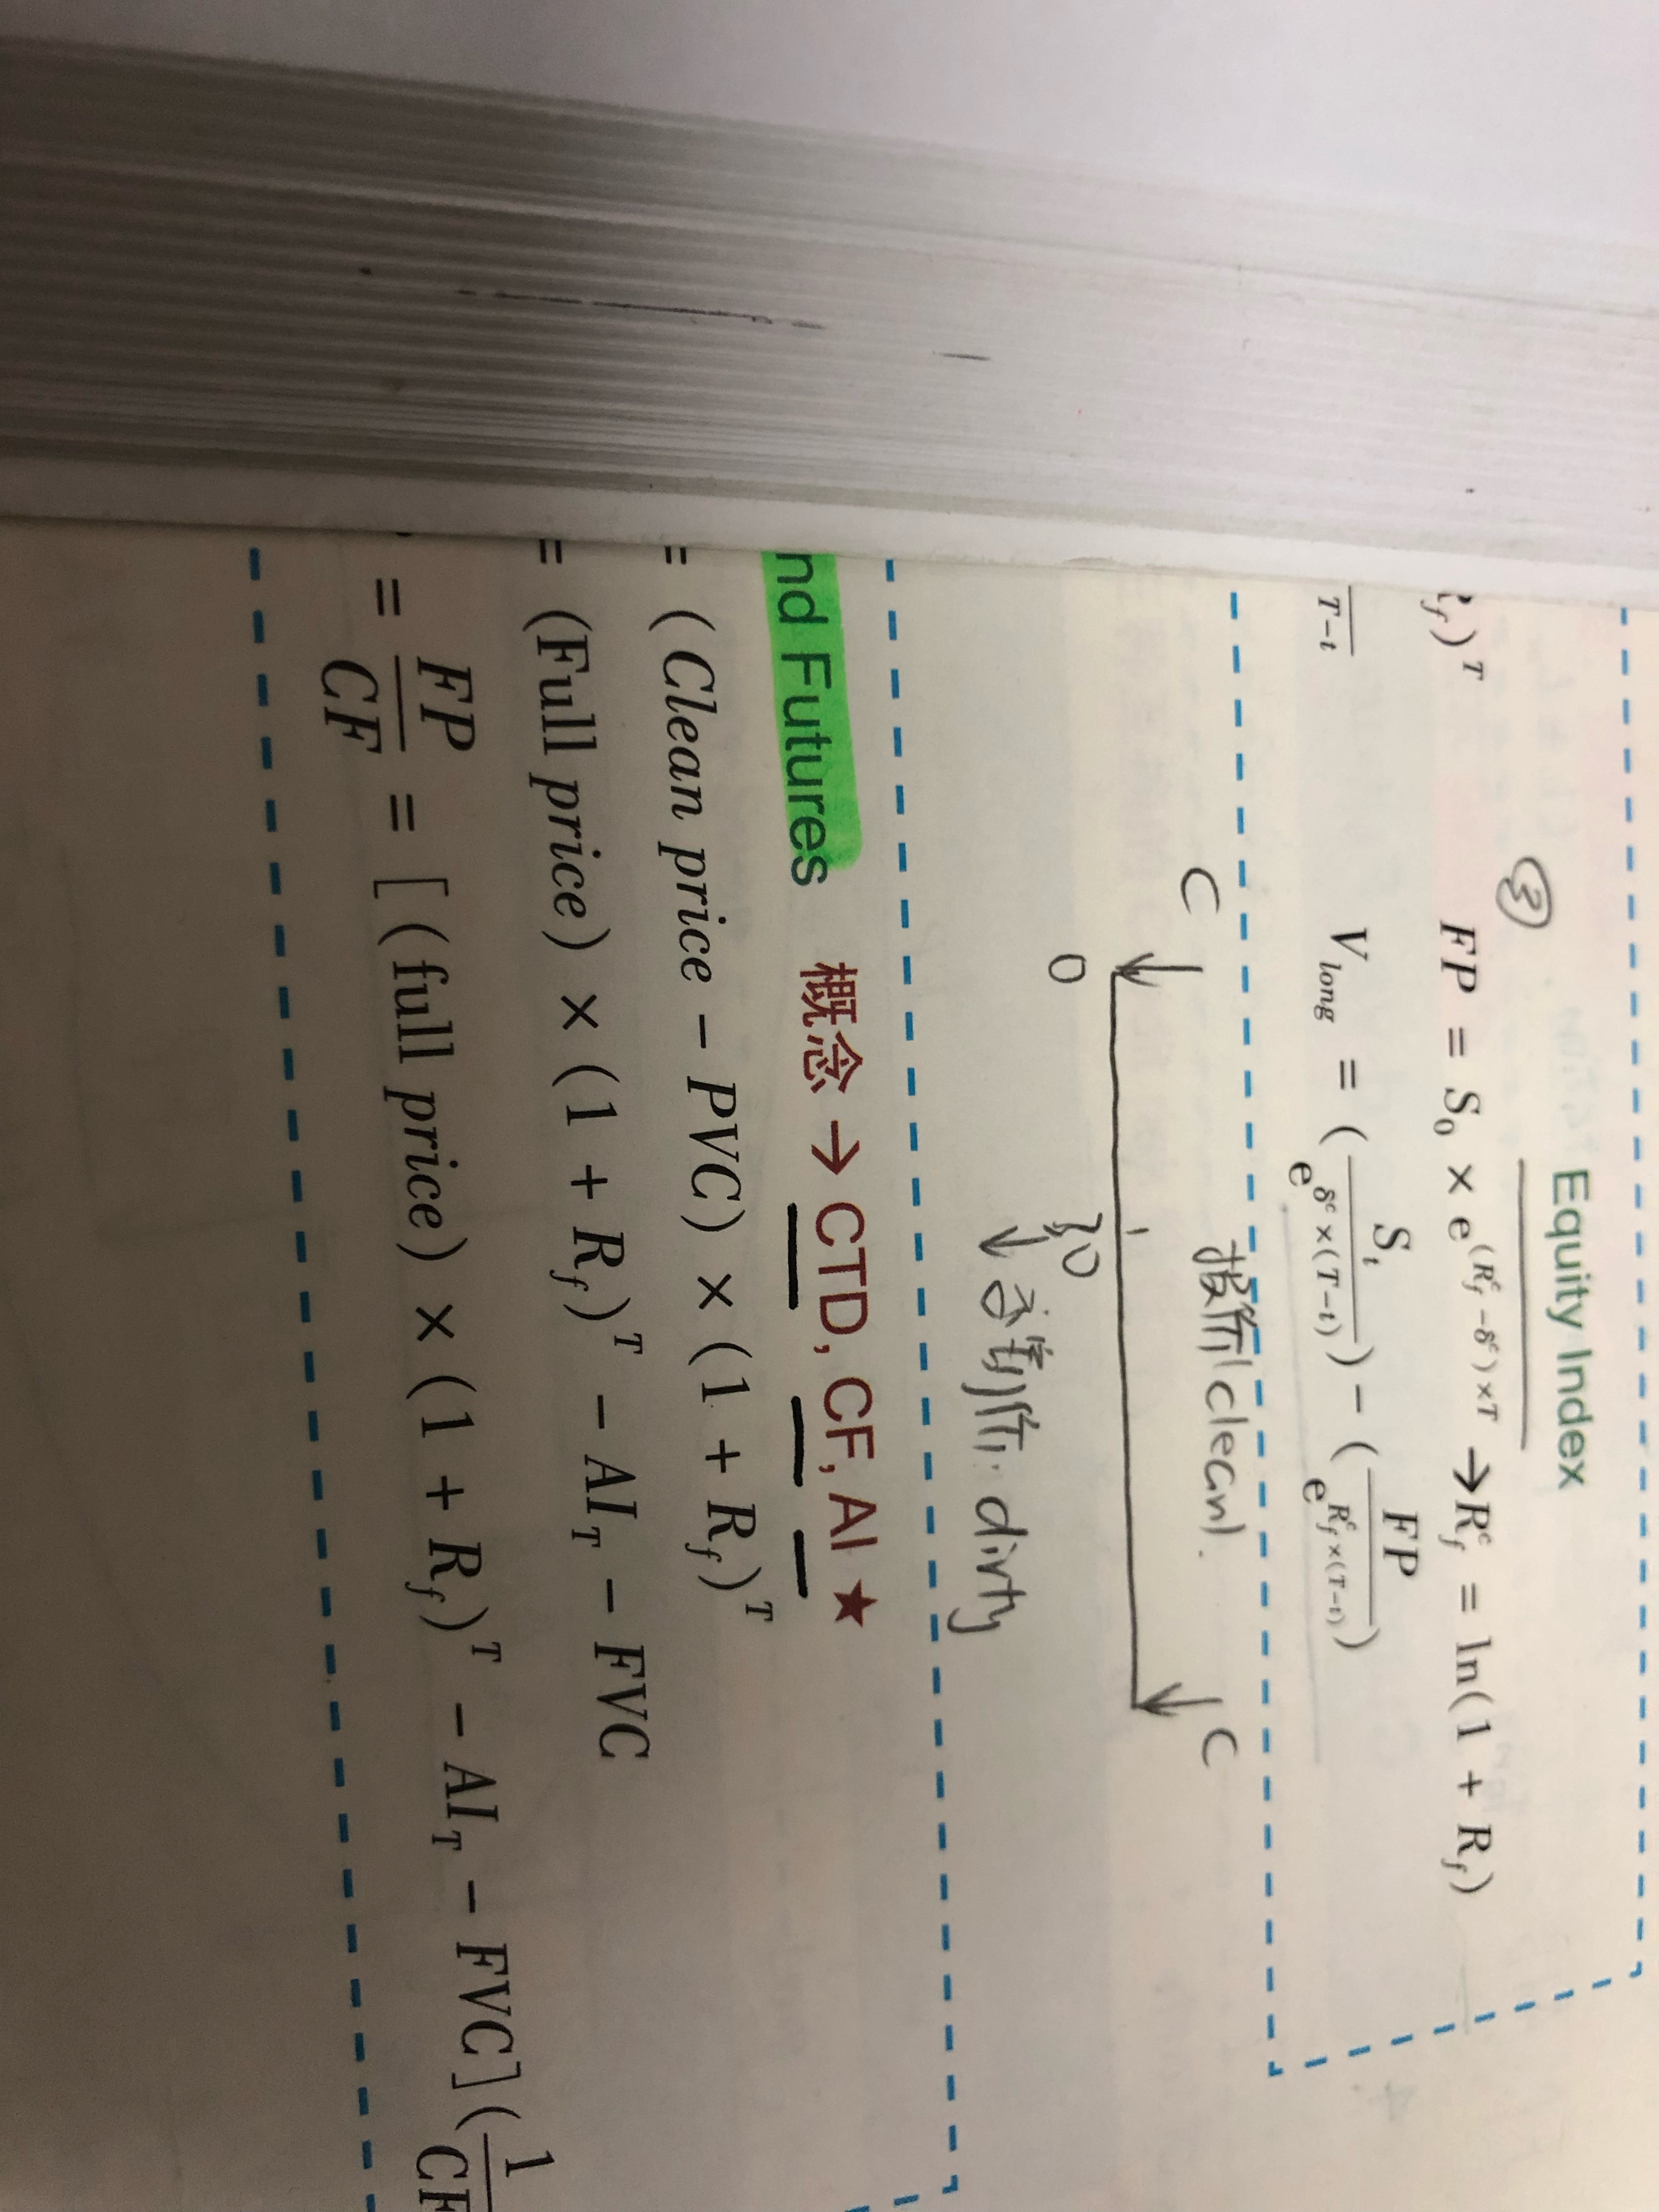 Equity Index
③ FP = S₀ × e^((R_f^c − δ^c)×T) → R_f^c = ln(1 + R_f)
)^T
V_long = (S_t / e^(δ^c×(T−t))) − (FP / e^(R_f^c×(T−t)))
T−t
C 报价(clean). C
0 30
↓ 结算价. dirty
nd Futures 概念 → CTD, CF, AI ★
= (Clean price − PVC) × (1 + R_f)^T
= (Full price) × (1 + R_f)^T − AI_T − FVC
= FP/CF = [(full price) × (1 + R_f)^T − AI_T − FVC](1/CF